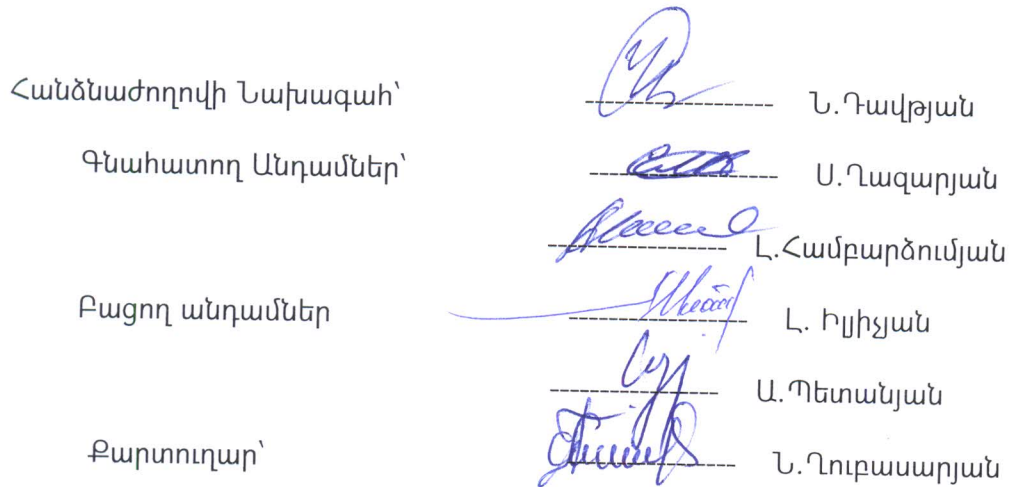 Հանձնաժողովի Նախագահ՝ ------------------ Ն.Դավթյան
Գնահատող Անդամներ՝ ------------------ Ս.Ղազարյան
------------------ Լ.Համբարձումյան
Բացող անդամներ ------------------ Լ. Իլիչյան
------------------ Ա.Պետանյան
Քարտուղար՝ ------------------ Ն.Ղուբասարյան